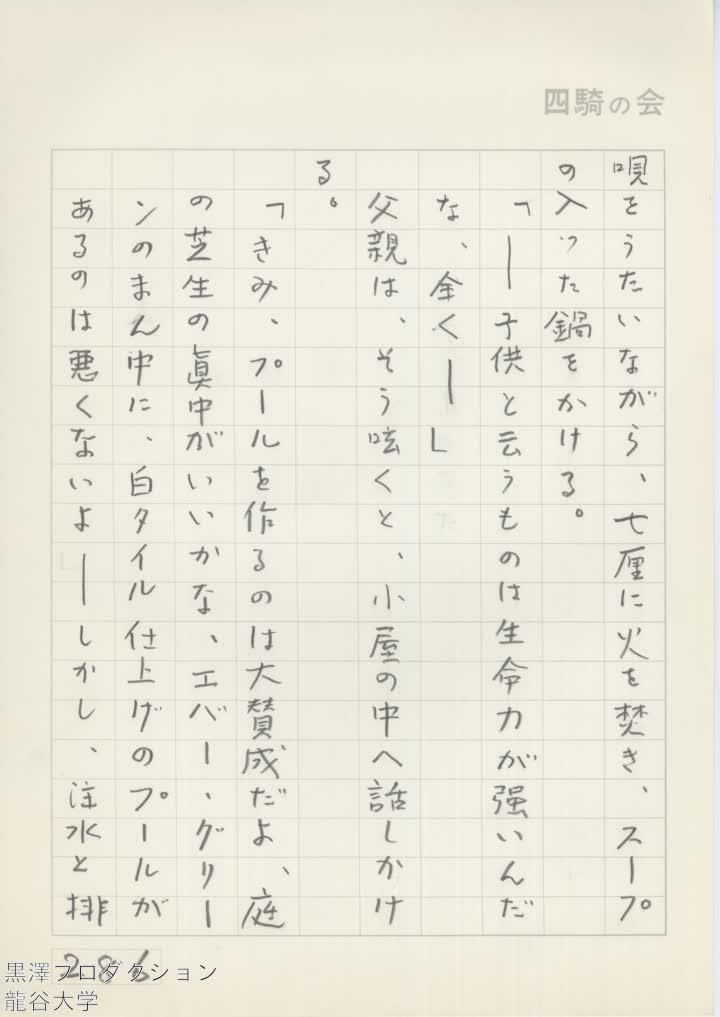 四騎の会
唄をうたいながら、七厘に火を焚き、スープ
の入った鍋をかける。
「―子供と云うものは生命力が強いんだ
な、全く―」
父親は、そう呟くと、小屋の中へ話しかけ
る。
「きみ、プールを作るのは大賛成だよ、庭
の芝生の眞中がいいかな、エバー・グリー
ンのまん中に、白タイル仕上げのプールが
あるのは悪くないよ―しかし、注水と排
286
黒澤プロダクション
龍谷大学